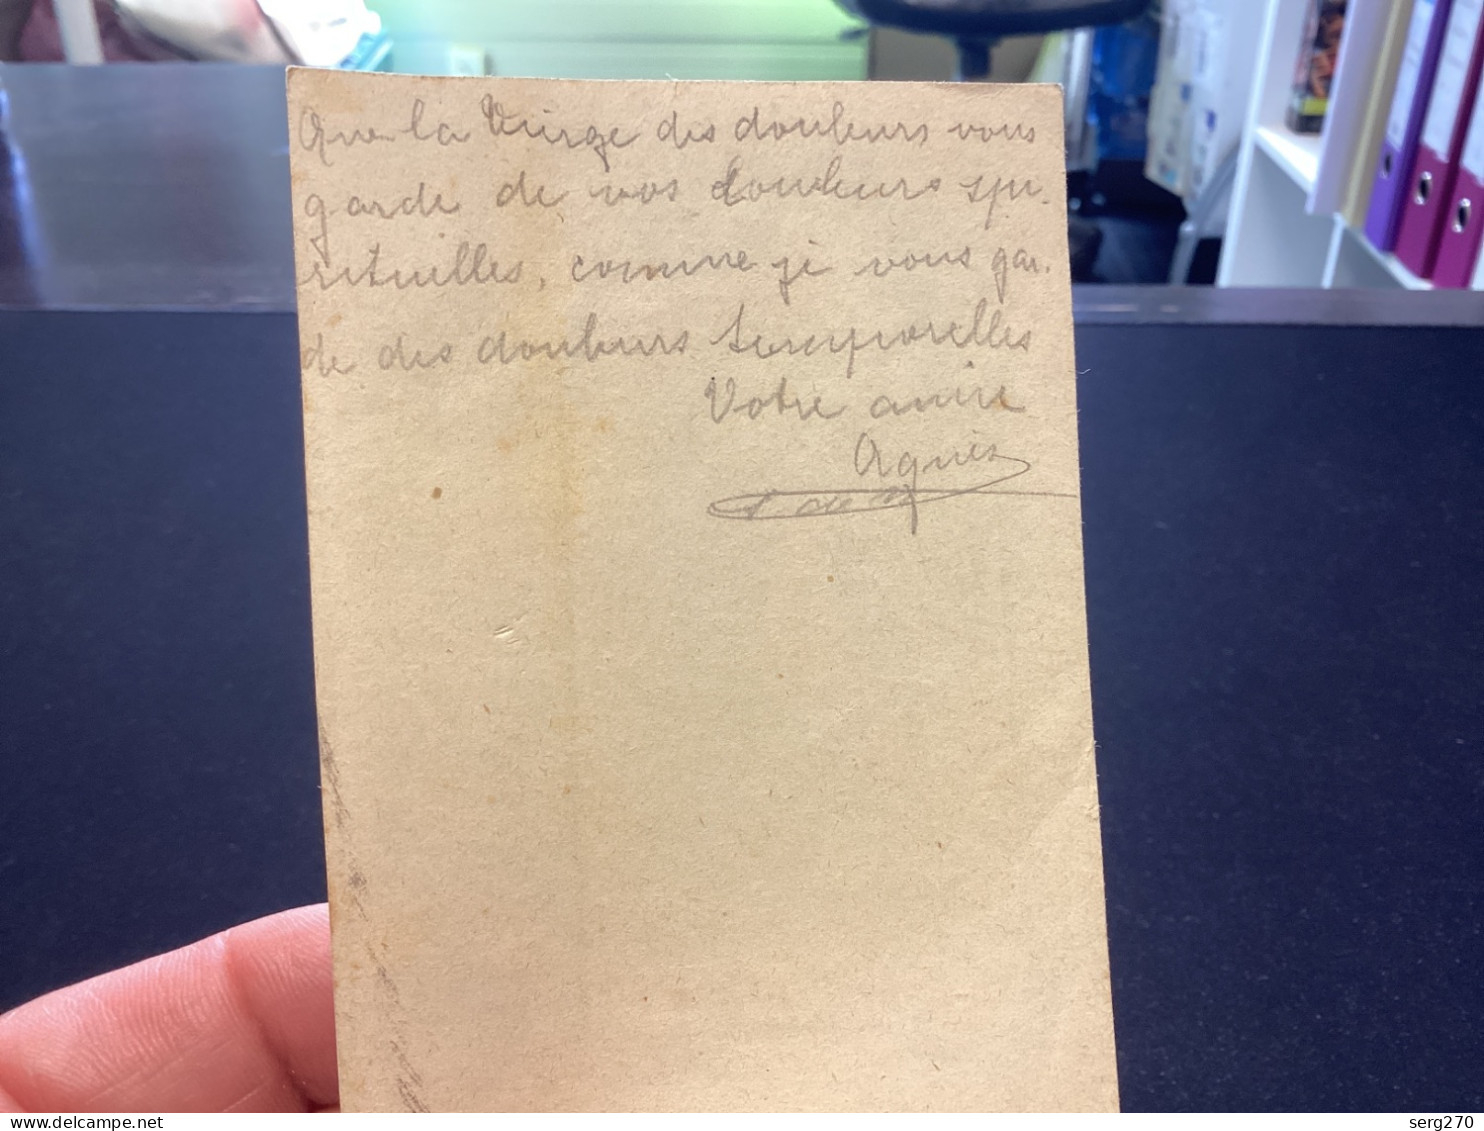 Que la Vierge des douleurs vous
garde de vos douleurs spi.
rituelles, comme je vous gar.
de des douleurs temporelles
Votre amie
Agnès
delcampe.net
serg270